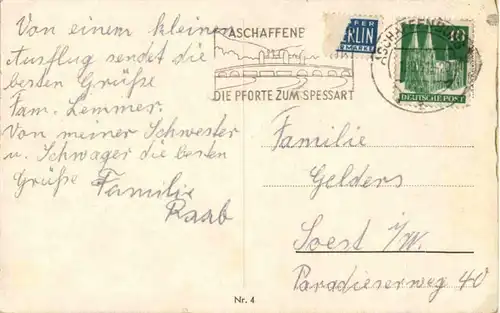 Von einem kleinen
Ausflug sendet die
besten Grüße
Fam. Lemmer.
Von meiner Schwester
u. Schwager die besten
Grüße Familie
Raab
ASCHAFFENB
DIE PFORTE ZUM SPESSART
PFER
ERLIN
MARKE
ASCHAFFENBU
10
DEUTSCHE POST
Familie
Gelders
Soest i/W.
Paradieserweg 40
Nr. 4